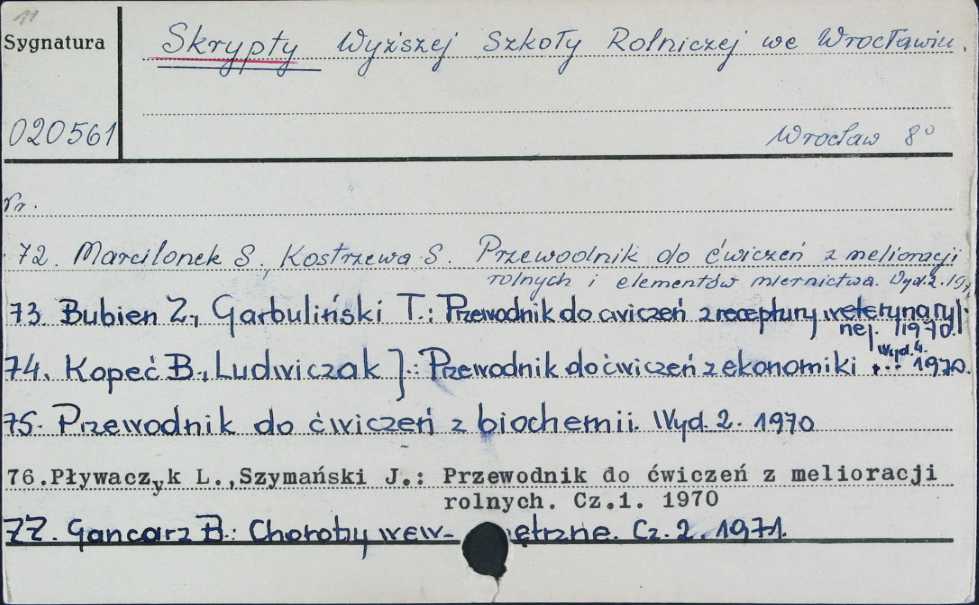 11
Sygnatura
Skrypty Wyższej Szkoły Rolniczej we Wrocławiu.
020561
Wrocław 8°
nr.
72. Marcilonek S., Kostrzewa S. Przewodnik do ćwiczeń z melioracji
rolnych i elementów miernictwa. Wyd. 2. 197
73. Bubien Z., Garbuliński T.: Przewodnik do cwiczeń z receptury weterynaryj
nej. 1970.
74. Kopeć B., Ludwiczak J.: Przewodnik do ćwiczeń z ekonomiki ... Wyd. 4. 1970.
75. Przewodnik do ćwiczeń z biochemii. Wyd. 2. 1970
76. Pływaczyk L., Szymański J.: Przewodnik do ćwiczeń z melioracji
rolnych. Cz.1. 1970
77. Gancarz B.: Choroby wew- ętrzne. Cz. 2. 1971.